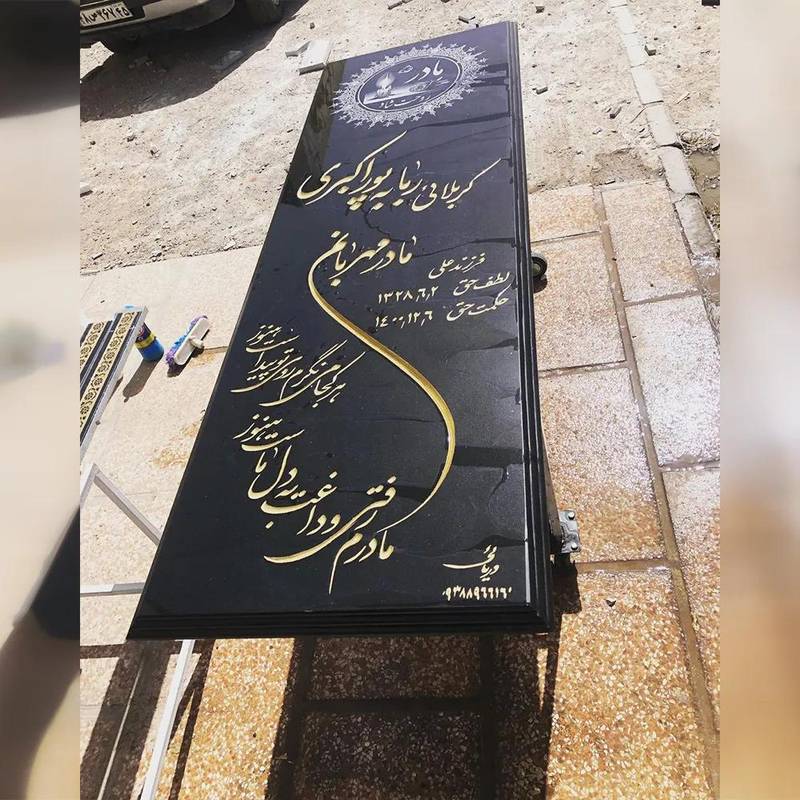 مادر
راحت شاد
کربلائی ربابه پوراکبری
مادر مهربانم
فرزند علی
لطف حق ۱۳۲۸٫۶٫۲
حکمت حق ۱۴۰۰٫۱۲٫۶
هر کجا می نگرم روی تو پیداست هنوز
مادرم رفتی و داغت به دل ماست هنوز
دریائی